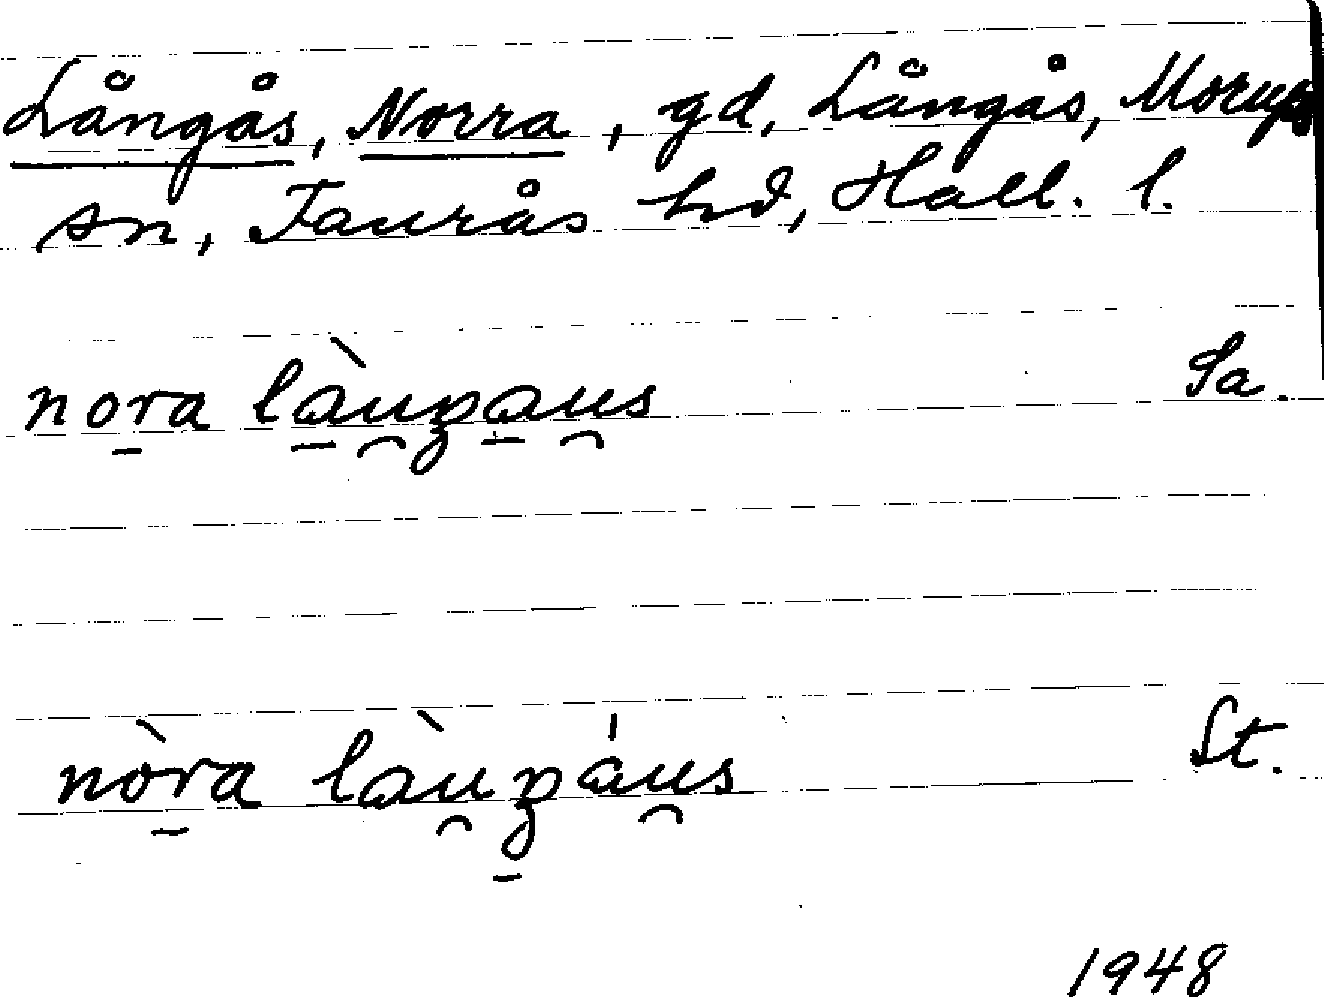 Långås, Norra, gd, Långås, Morups
sn, Faurås hd, Hall. l.
nora làuŋaus Sa.
nòra làuŋáus St.
1948